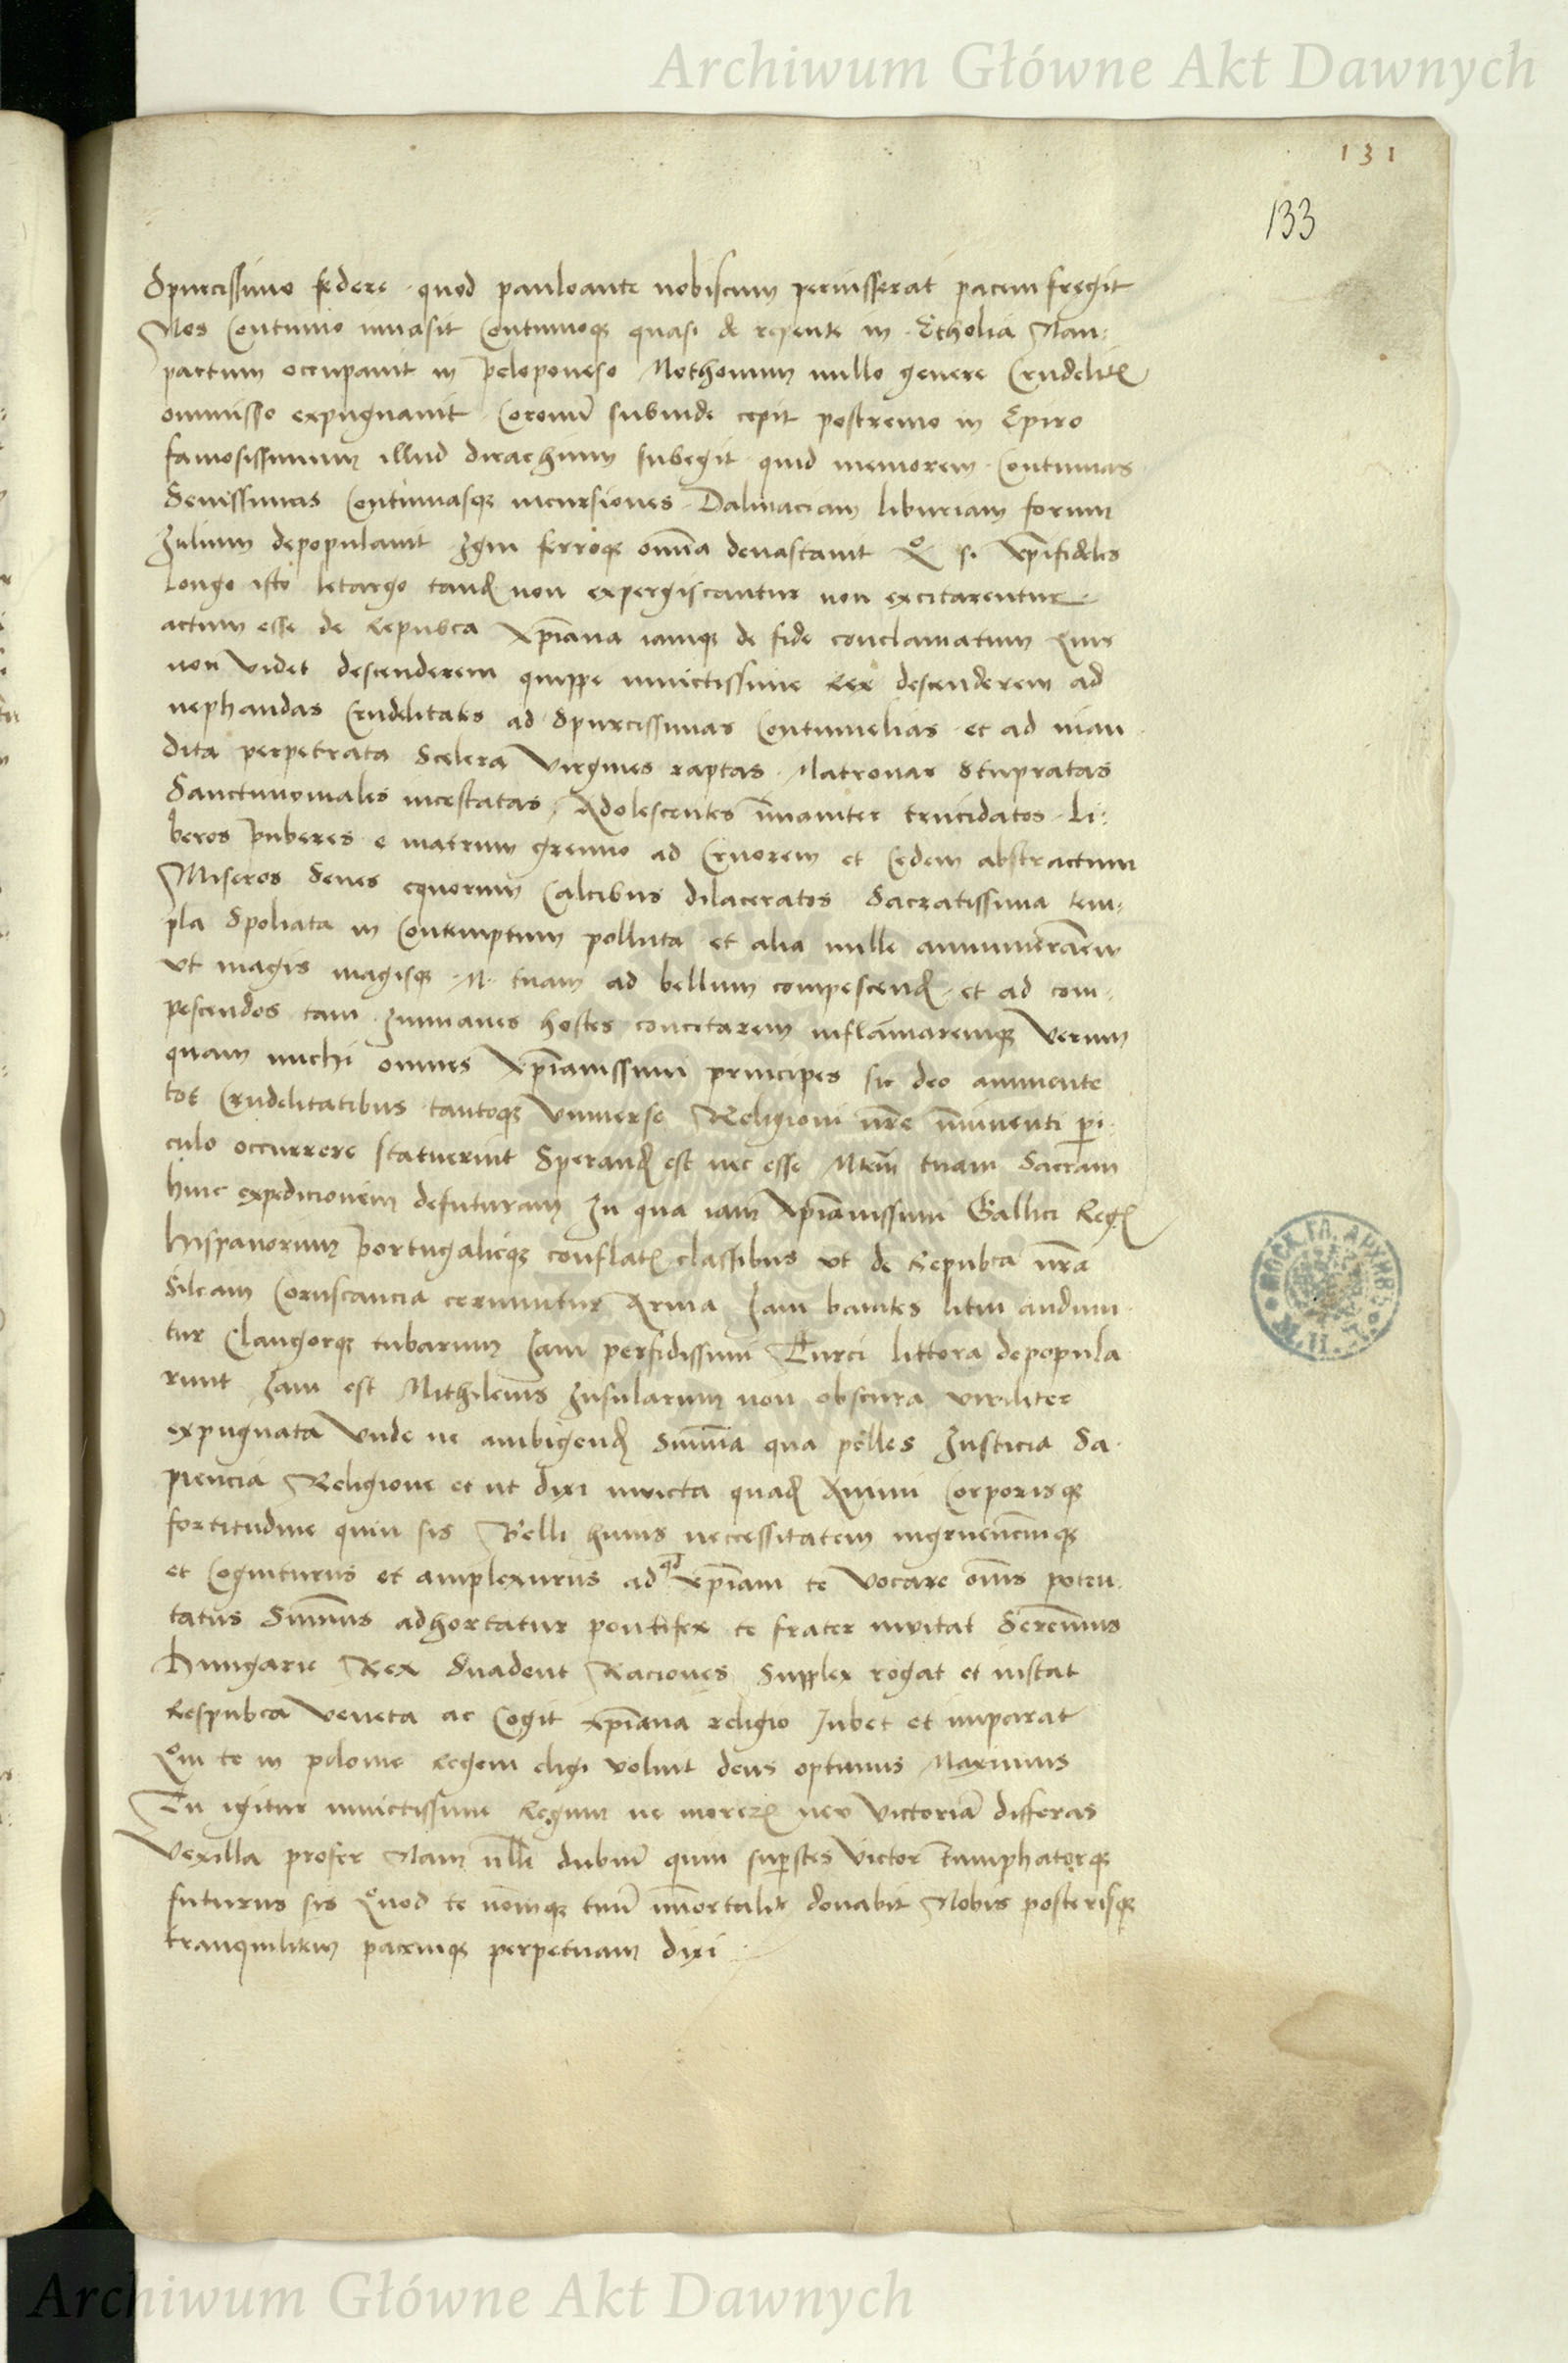 Archiwum Główne Akt Dawnych
131
133
Spurcissimo federe quod pauloante nobiscum periusserat pacem fregit
Nos Continuo inuasit Continuoqꝫ quasi de repente in Etholia Nau:
pactum occupauit in Peloponeso Mothonum nullo genere Crudelitꝭ
ommisso expugnauit Coronū subinde cepit postremo in Epiro
famosissimum illud dirachium subegit quid memorem Continuas
Seuissimas Continuasqꝫ incursiones Dalmaciam liburiam forum
Julium depopulauit Igni ferroqꝫ om̄ia deuastauit Qº si xp̄ifideles
longo isto letargo tandꝭ non expergiscantur non excitarentur
actum esse de Repubca xp̄iana iamqꝫ de fide conclamatum Quis
non videt descenderem quippe inuictissime Rex descenderem ad
nephandas Crudelitates ad Spurcissimas Contumelias et ad inau
dita perpetrata Scelera Virgines raptas Matronas Stupratas
Sanctimoniales incestatas Adolescentes īmaniter trucidatos Li:
beros Puberes e matrum gremio ad Cruorem et Cedem abstractum
Miseros Senes equorum Calcibus dilaceratos Sacratissima tem:
pla Spoliata in Contemptum polluta et alia mille annumerarem
vt magis magisqꝫ M. tuam ad bellum compescendꝭ et ad com:
pescendos tam Inmanes hostes concitarem inflāmaremqꝫ Verum
quam michi omnes xp̄ianissimi principes sic deo annuente
tot Crudelitatibus tantoqꝫ Vniuerse Religioni nr̄e īminenti peri
culo occurrere statuerint Sperandꝭ est nec esse Mtem̄ tuam Sacram
hinc expedicionem defuturam In qua iam xp̄ianissimi Gallici Regꝭ
hispanorum Portugalicqꝫ conflatꝭ classibus vt de Repubca nr̄a
Sileam Coruscancia cernuntur Arma Iam bauites litui audiun
tur Clangorqꝫ tubarum Iam perfidissimi Turci littora depopula
runt Iam est Mithilenis Insularum non obscura viriliter
expugnata Vnde ne ambigendꝭ Sum̄a qua polles Iusticia Sa
piencia Religione et ut dixi inuicta quadꝭ Animi Corporisqꝫ
fortitudine quin sis Belli huius neccessitatem ingruencīmqꝫ
et Cogniturus et amplexurus ad qd xp̄iam te Vocare om̄is poten
tatus Sum̄us adhortatur pontifex te frater inuitat Seren̄imus
Hungarie Rex Suadent Raciones Supplex rogat et instat
Respubca Veneta ac Cogit xp̄iana religio Iubet et imperat
Qui te in polonie Regem eligi voluit deus optimus Maximus
Tu igitur inuictissime Regum ne morerꝭ neu Victoriā differas
Vexilla profer Nam nll̄i dubiū quin suꝑstes Victor Triumphatorqꝫ
futurus sis Quod te nomēqꝫ tuū īmortalitꝭ donabit Nobis posterisqꝫ
tranquilitem pacemqꝫ perpetuam dixi
Archiwum Główne Akt Dawnych